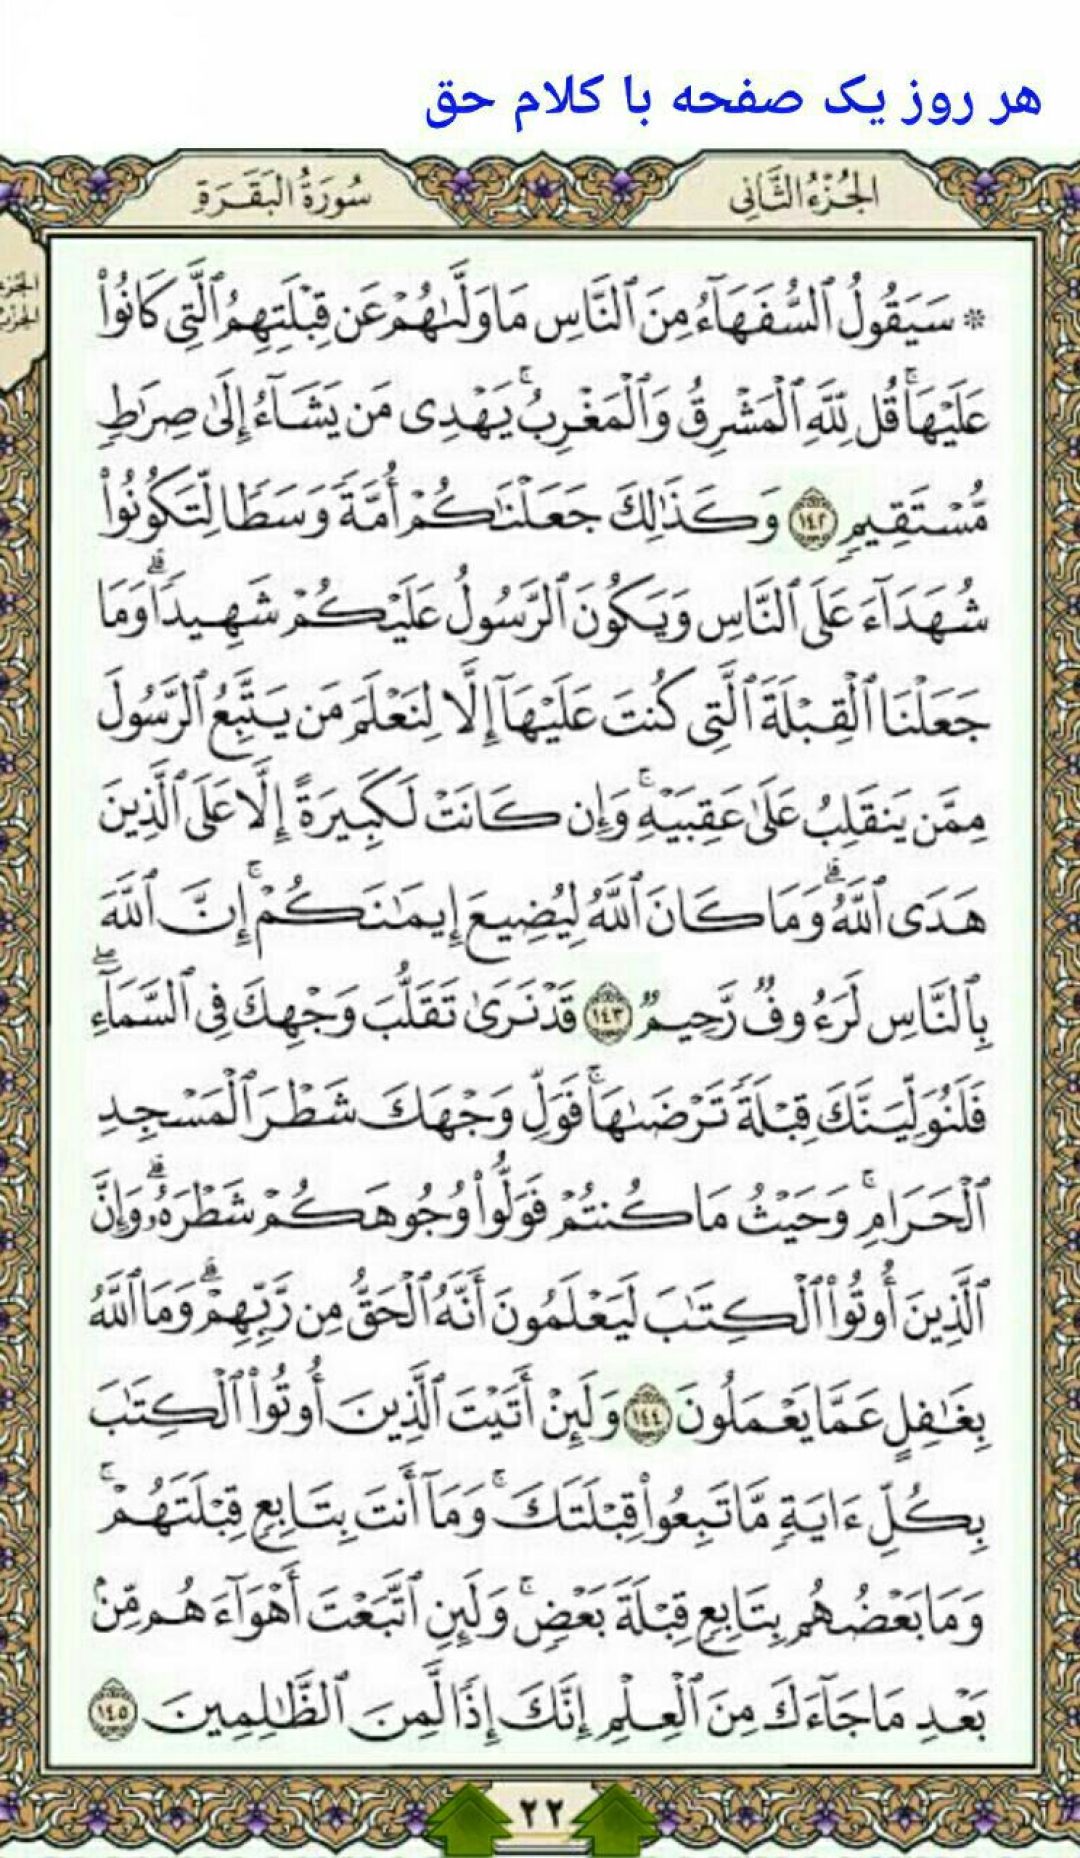 هر روز یک صفحه با کلام حق
الجُزْءُ الثَّانِي
سُورَةُ البَقَرَةِ
الجزء
الحزب
۞ سَيَقُولُ ٱلسُّفَهَآءُ مِنَ ٱلنَّاسِ مَا وَلَّىٰهُمْ عَن قِبْلَتِهِمُ ٱلَّتِى كَانُوا۟
عَلَيْهَا ۚ قُل لِّلَّهِ ٱلْمَشْرِقُ وَٱلْمَغْرِبُ ۚ يَهْدِى مَن يَشَآءُ إِلَىٰ صِرَٰطٍ
مُّسْتَقِيمٍ ١٤٢ وَكَذَٰلِكَ جَعَلْنَٰكُمْ أُمَّةً وَسَطًا لِّتَكُونُوا۟
شُهَدَآءَ عَلَى ٱلنَّاسِ وَيَكُونَ ٱلرَّسُولُ عَلَيْكُمْ شَهِيدًا ۗ وَمَا
جَعَلْنَا ٱلْقِبْلَةَ ٱلَّتِى كُنتَ عَلَيْهَآ إِلَّا لِنَعْلَمَ مَن يَتَّبِعُ ٱلرَّسُولَ
مِمَّن يَنقَلِبُ عَلَىٰ عَقِبَيْهِ ۚ وَإِن كَانَتْ لَكَبِيرَةً إِلَّا عَلَى ٱلَّذِينَ
هَدَى ٱللَّهُ ۗ وَمَا كَانَ ٱللَّهُ لِيُضِيعَ إِيمَٰنَكُمْ ۚ إِنَّ ٱللَّهَ
بِٱلنَّاسِ لَرَءُوفٌ رَّحِيمٌ ١٤٣ قَدْ نَرَىٰ تَقَلُّبَ وَجْهِكَ فِى ٱلسَّمَآءِ ۖ
فَلَنُوَلِّيَنَّكَ قِبْلَةً تَرْضَىٰهَا ۚ فَوَلِّ وَجْهَكَ شَطْرَ ٱلْمَسْجِدِ
ٱلْحَرَامِ ۚ وَحَيْثُ مَا كُنتُمْ فَوَلُّوا۟ وُجُوهَكُمْ شَطْرَهُۥ ۗ وَإِنَّ
ٱلَّذِينَ أُوتُوا۟ ٱلْكِتَٰبَ لَيَعْلَمُونَ أَنَّهُ ٱلْحَقُّ مِن رَّبِّهِمْ ۗ وَمَا ٱللَّهُ
بِغَٰفِلٍ عَمَّا يَعْمَلُونَ ١٤٤ وَلَئِنْ أَتَيْتَ ٱلَّذِينَ أُوتُوا۟ ٱلْكِتَٰبَ
بِكُلِّ ءَايَةٍ مَّا تَبِعُوا۟ قِبْلَتَكَ ۚ وَمَآ أَنتَ بِتَابِعٍ قِبْلَتَهُمْ ۚ
وَمَا بَعْضُهُم بِتَابِعٍ قِبْلَةَ بَعْضٍ ۚ وَلَئِنِ ٱتَّبَعْتَ أَهْوَآءَهُم مِّنۢ
بَعْدِ مَا جَآءَكَ مِنَ ٱلْعِلْمِ إِنَّكَ إِذًا لَّمِنَ ٱلظَّٰلِمِينَ ١٤٥
٢٢